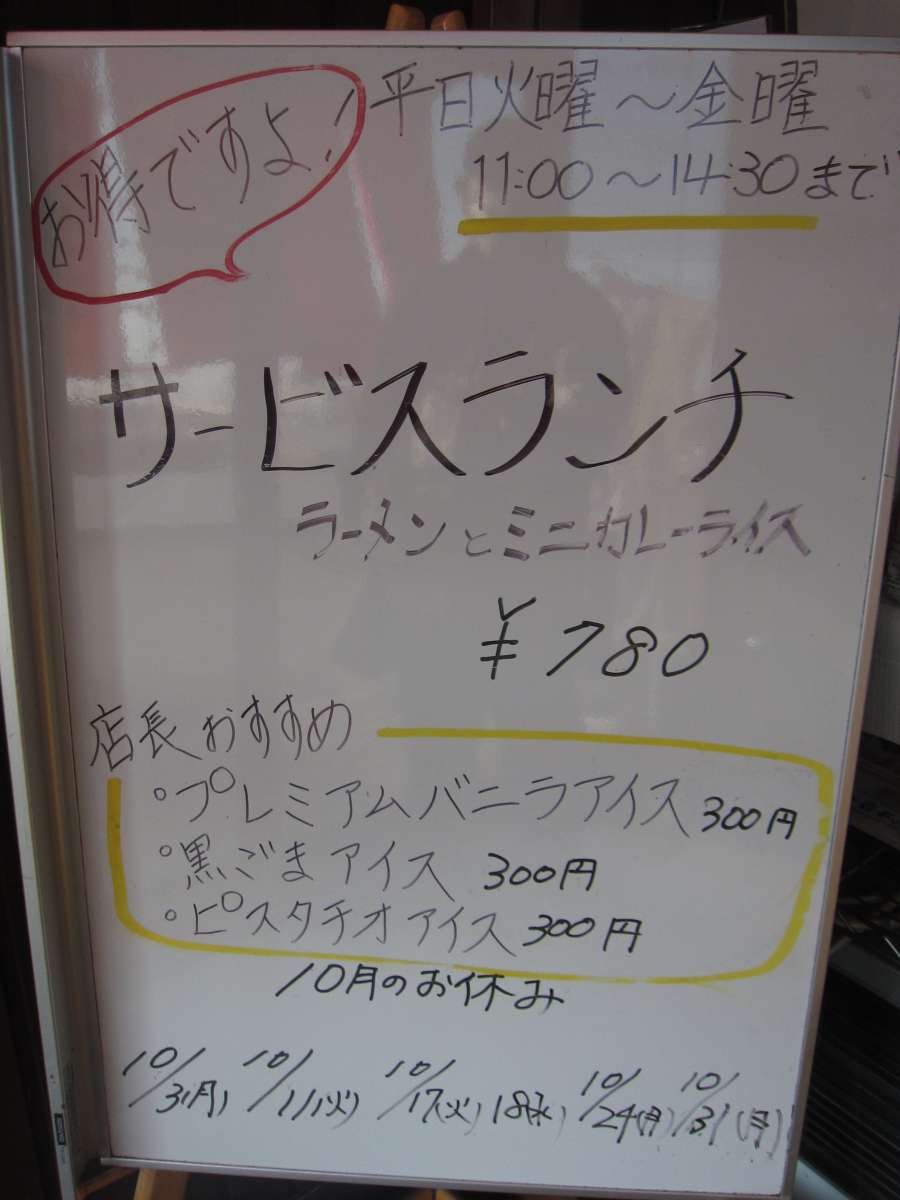 お得ですよ!
平日火曜～金曜
11:00～14:30まで
サービスランチ
ラーメンとミニカレーライス
¥780
店長おすすめ
°プレミアムバニラアイス 300円
°黒ごまアイス 300円
°ピスタチオアイス 300円
10月のお休み
10/3(月) 10/11(火) 10/17(火) 18(水) 10/24(月) 10/31(月)